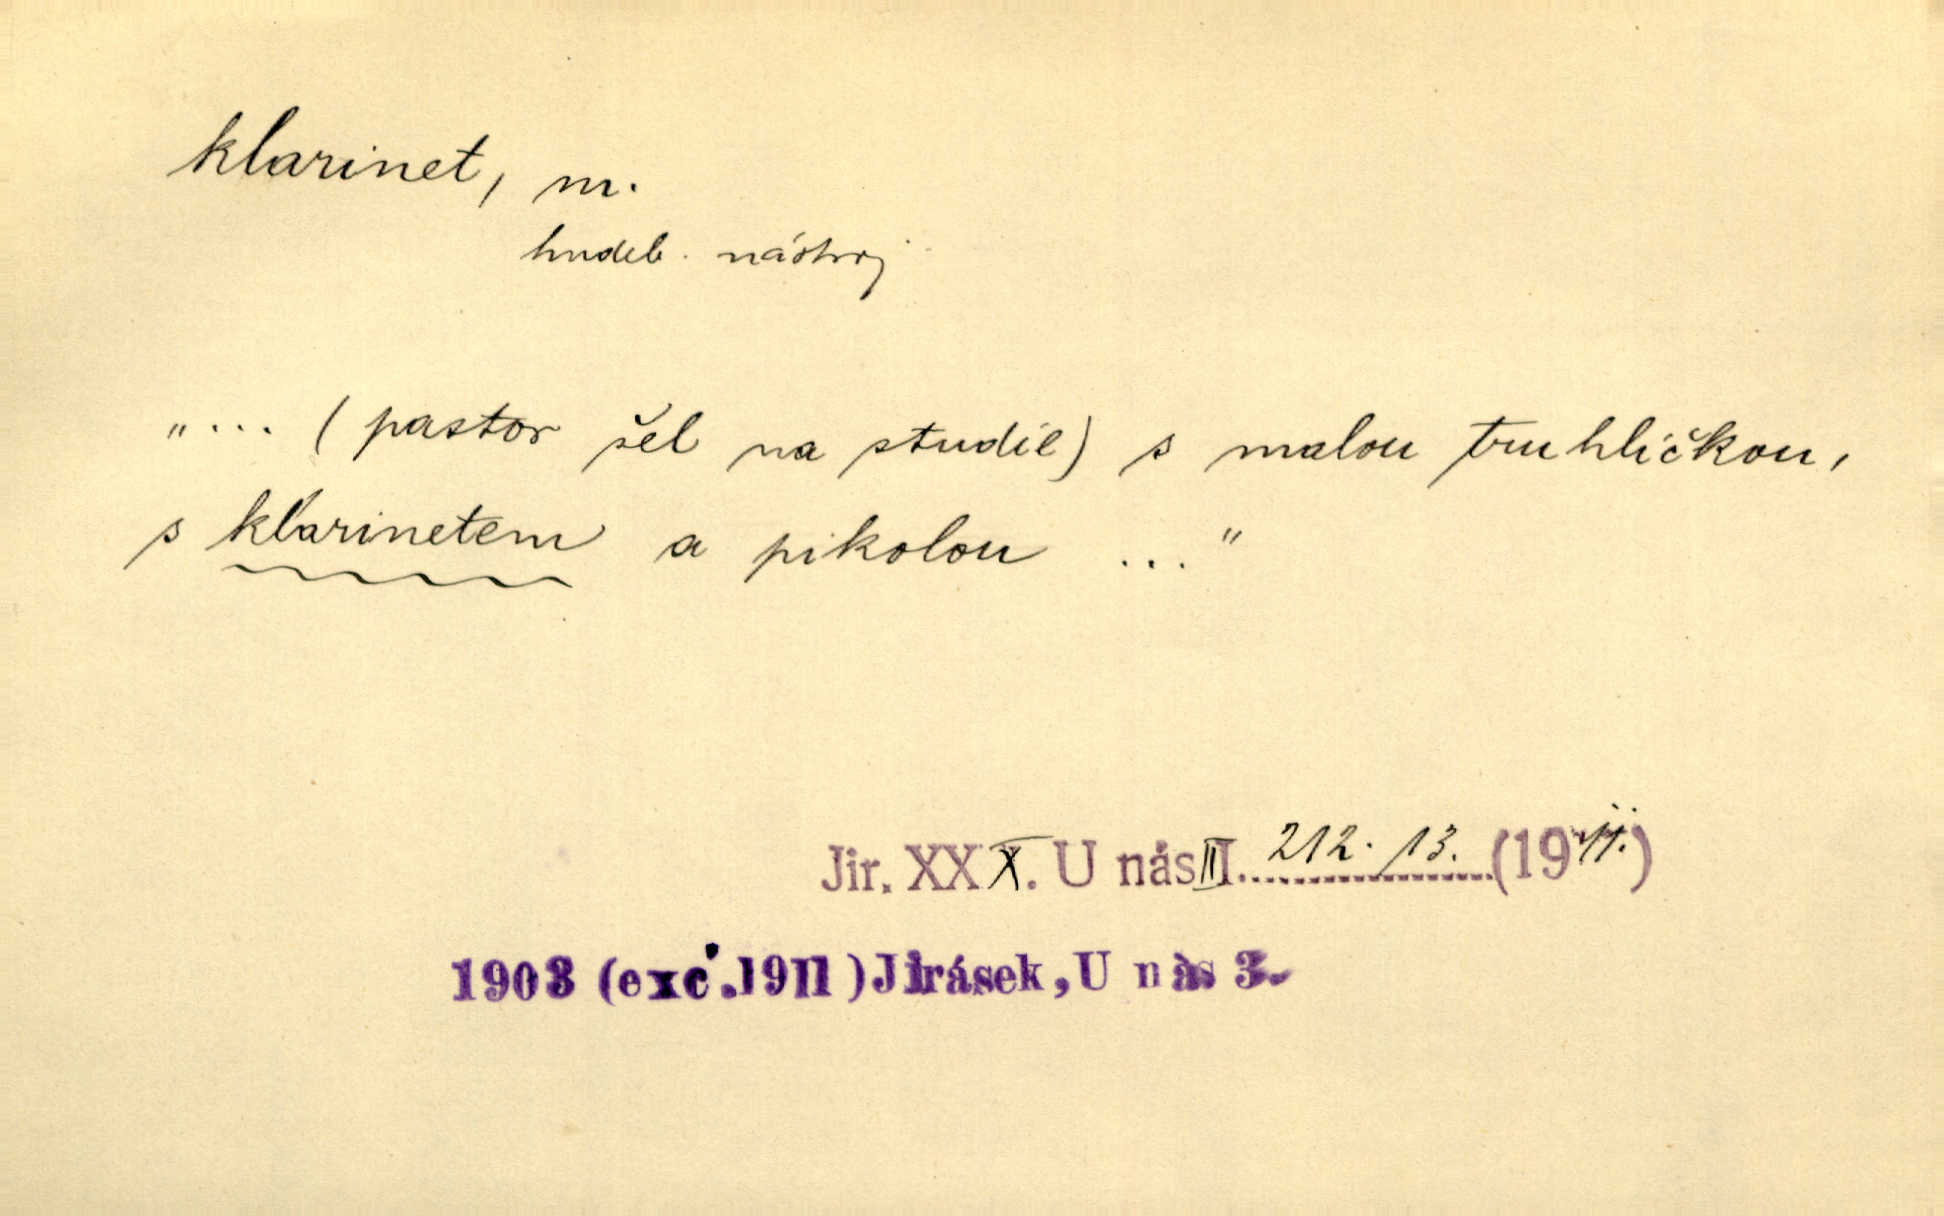 klarinet, m.
hudeb. nástroj
"... (pastor šel na studie) s malou truhličkou,
s klarinetem a pikolou ..."
Jir. XXX. U nás III. 212. 13. (1911.)
1903 (exc.1911) Jirásek, U nás 3.